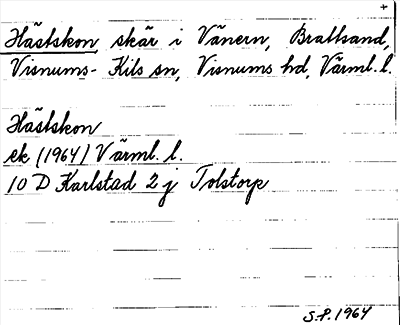 +
Hästskon skär i Vänern, Brattsand,
Visnums-Kils sn, Visnums hd, Värml. l.
Hästskon
ek (1964) Värml. l.
10 D Karlstad 2 j Tolstorp
S.P. 1964